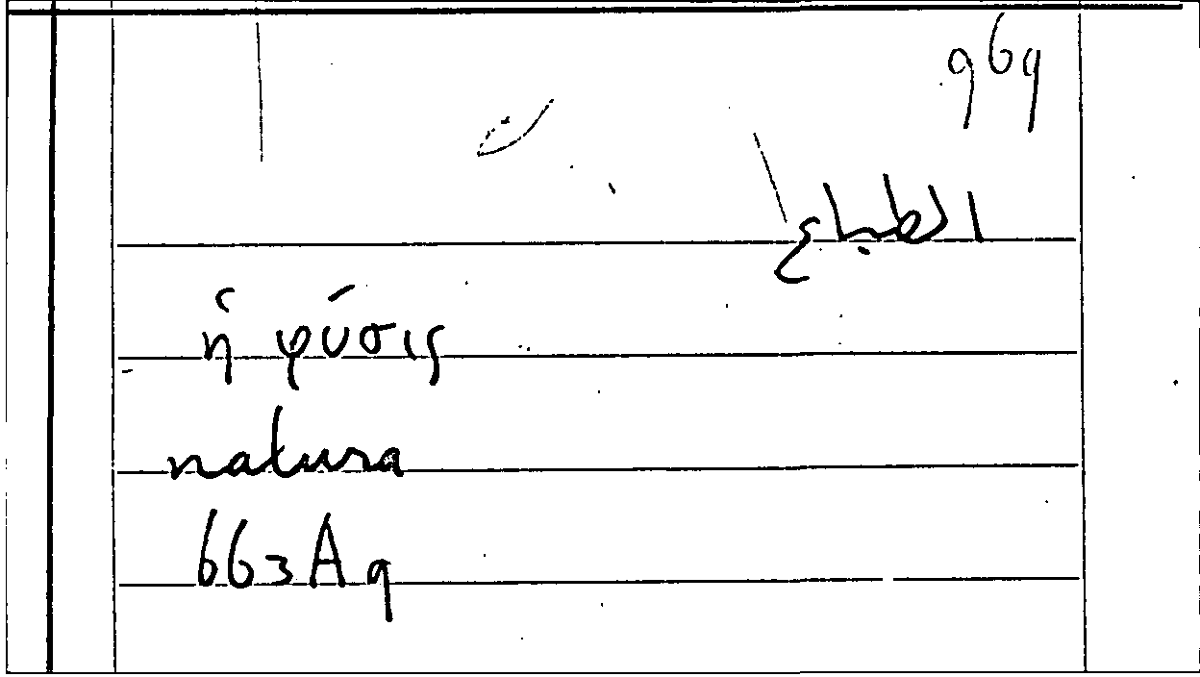 969
الطباع
ἡ φύσις
natura
663A9